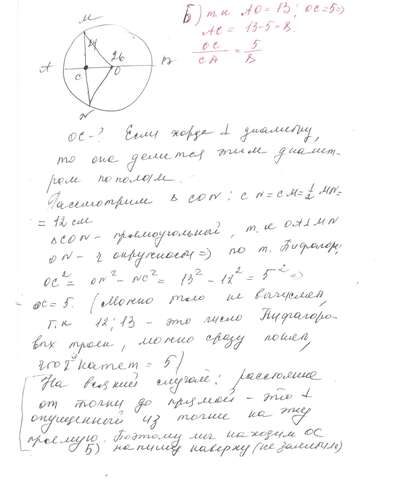 Б) т.к АО = 13; ОС = 5 =>
АС = 13-5 = 8.
ОС/СА = 5/8
М
24
26
А
С
О
В
N
ОС - ? Если хорда ⊥ диаметру,
то она делится этим диамет-
ром пополам.
Рассмотрим Δ CON: CN = CM = 1/2 MN =
= 12 см
Δ CON - прямоугольный, т.к OA ⊥ MN
ON - r окружности => по т. Пифагора
OC² = ON² - NC² = 13² - 12² = 5² =>
OC = 5. (Можно того не вычислять,
т.к 12; 13 - это число Пифагоро-
вых троек, можно сразу понять,
что катет = 5)
На всякий случай: расстояние
от точки до прямой - это ⊥
опущенной из точки на эту
прямую. Поэтому мы находим ОС
Б) напишу наверху (не заметил)